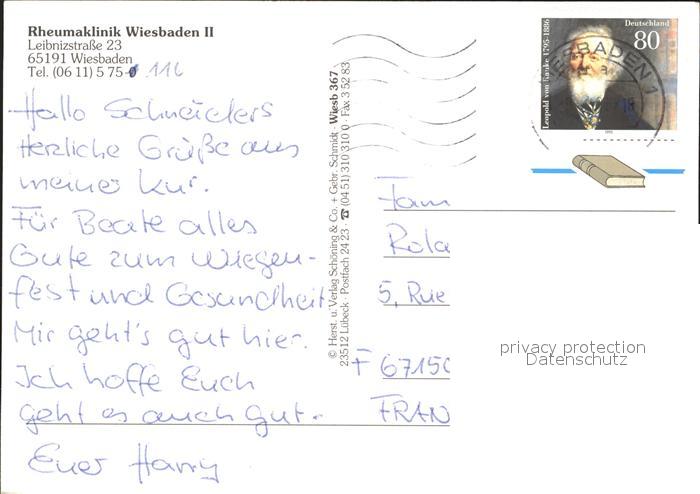 Rheumaklinik Wiesbaden II
Leibnizstraße 23
65191 Wiesbaden
Tel. (06 11) 5 75-0 116
Hallo Schneiders
Herzliche Grüße aus
meiner Kur.
Für Beate alles
Gute zum Wiegen-
fest und Gesundheit
Mir geht's gut hier.
Ich hoffe Euch
geht es auch gut.
Euer Harry
© Herst. u. Verlag Schöning & Co. + Gebr. Schmidt · Wiesb 367
23512 Lübeck · Postfach 24 23 · ☎ (04 51) 310 310 0 · Fax 3 52 83
Deutschland
80
Leopold von Ranke 1795-1886
BADEN 1
Fam
Rola
5, Rue
F 67150
FRAN
privacy protection
Datenschutz